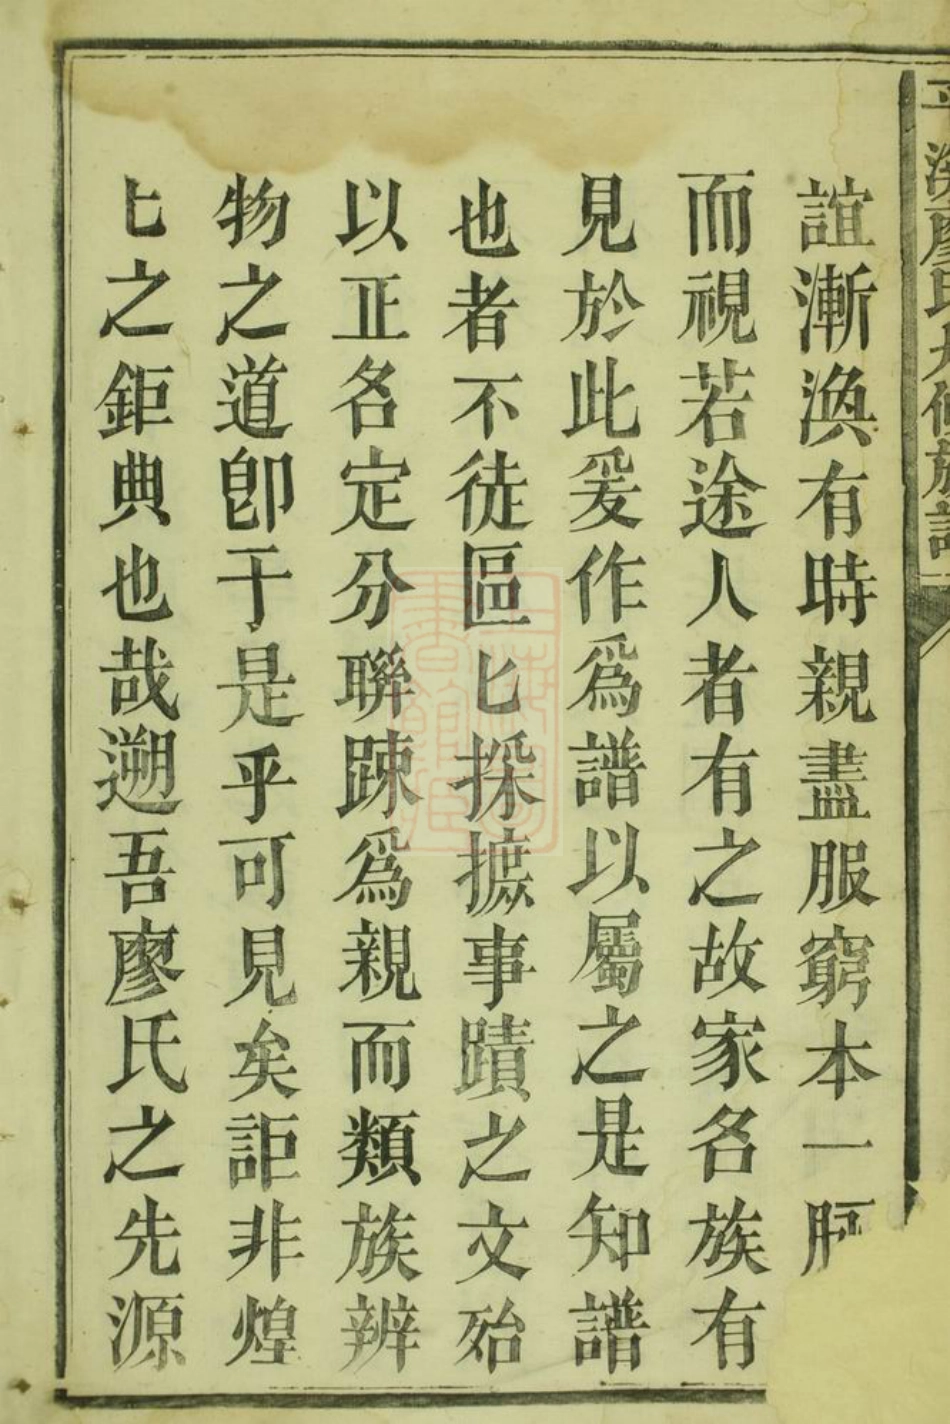 誼漸渙有時親盡服窮本一
而視若途人者有之故家名族有
見於此爰作爲譜以屬之是知譜
也者不徒區匕採摭事蹟之文殆
以正名定分聯踈爲親而類族辨
物之道卽于是乎可見矣詎非煌
匕之鉅典也哉遡吾廖氏之先源